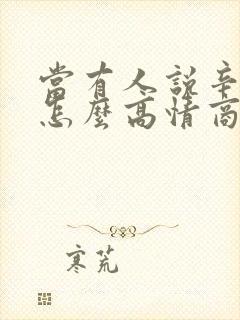 當有人說辛
怎麼高情商
寒荒